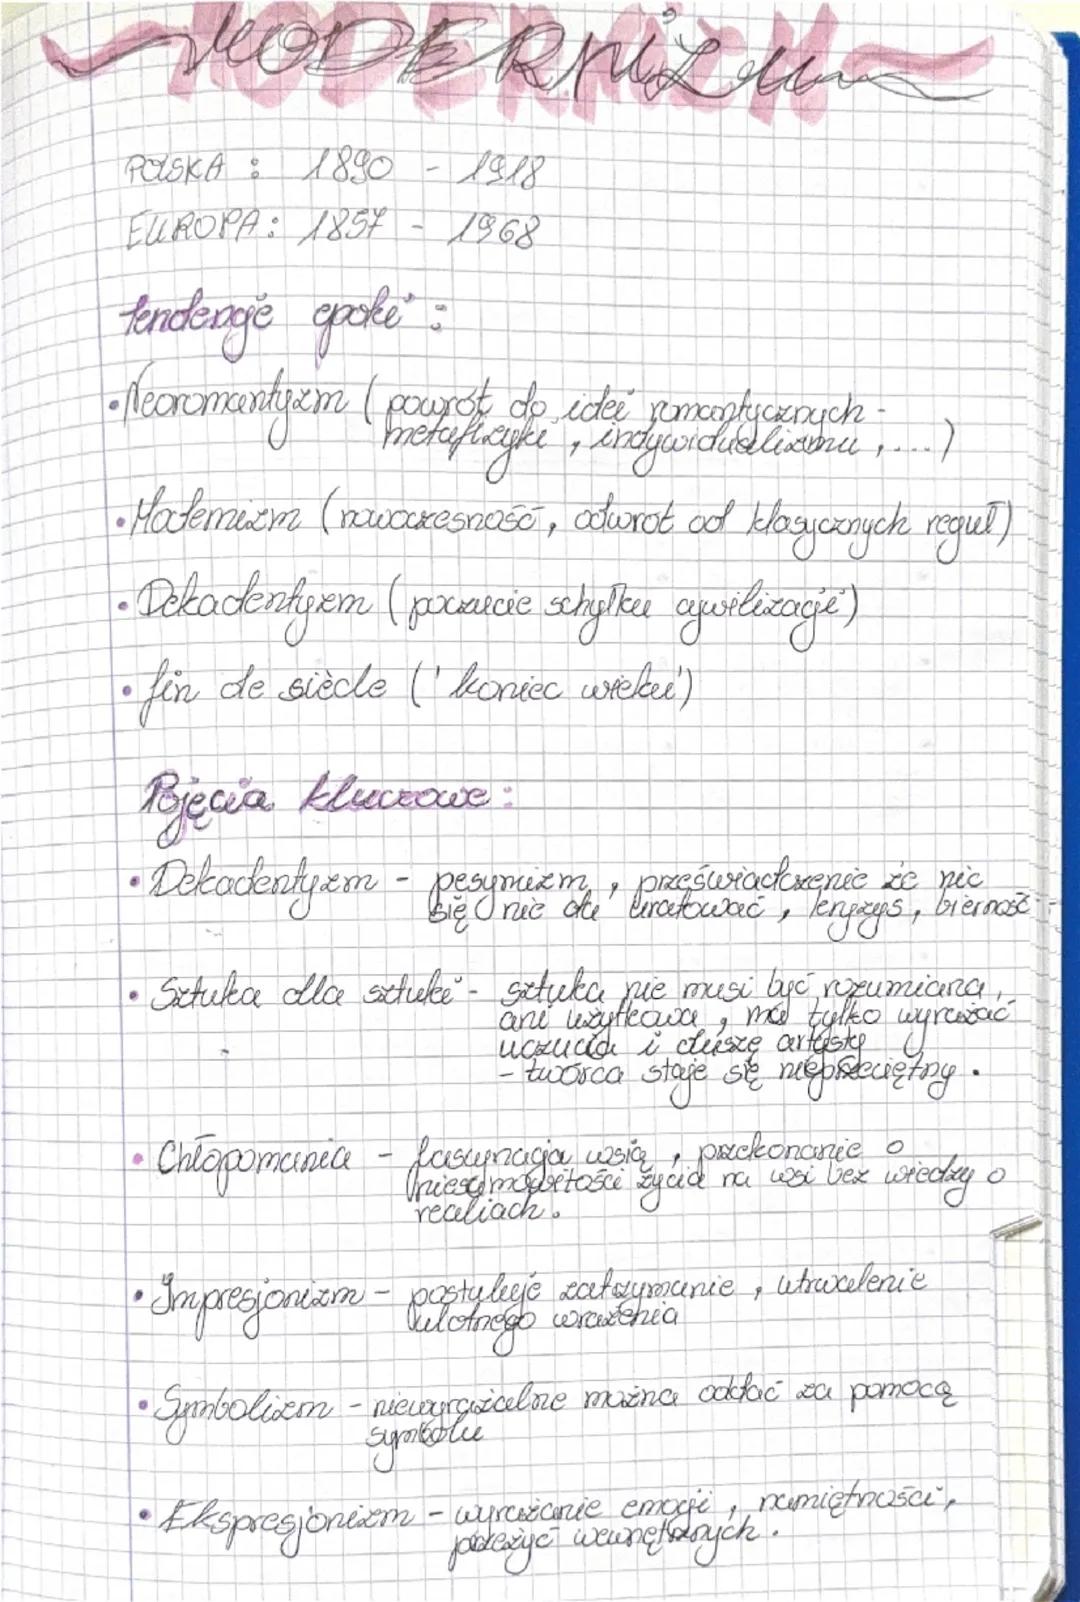 MODERNIZM
POLSKA : 1890 - 1918
EUROPA : 1857 - 1968
tendencje epoki :
• Neoromantyzm ( powrót do idei romantycznych -
metafizyki , indywidualizmu , .... )
• Modernizm ( nowoczesność , odwrót od klasycznych reguł )
• Dekadentyzm ( poczucie schyłku cywilizacji )
• fin de siècle ( ' koniec wieku' )
Pojęcia kluczowe :
• Dekadentyzm - pesymizm , przeświadczenie że nic
się nie da uratować , kryzys , bierność
• Sztuka dla sztuki - sztuka nie musi być rozumiana ,
ani użytkowa , ma tylko wyrażać
uczucia i duszę artysty
- twórca staje się nieprzeciętny .
• Chłopomania - fascynacja wsią , przekonanie o
niesamowitości życia na wsi bez wiedzy o
realiach .
• Impresjonizm - postuluje zatrzymanie , utrwalenie
ulotnego wrażenia
• Symbolizm - niewyrażalne można oddać za pomocą
symbolu
• Ekspresjonizm - wyrażanie emocji , namiętności ,
przeżyć wewnętrznych .